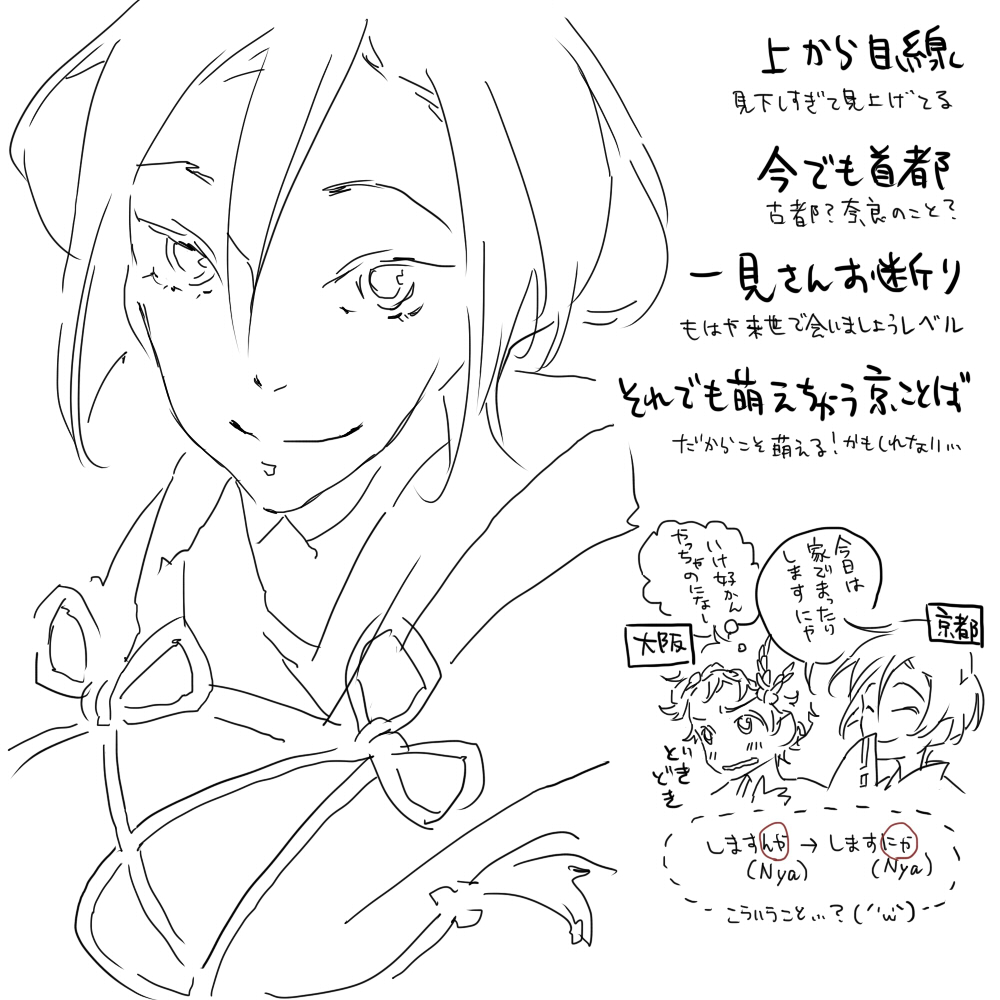 上から目線
見下しすぎて見上げてる
今でも首都
古都?奈良のこと?
一見さんお断り
もはや来世で会いましょうレベル
それでも萌えちゃう京ことば
だからこそ萌える!かもしれない…
今日は
家でまったり
しますにゃ
いけ好かん
やっちゃのになー
京都
大阪
どき
どき
しますんや→しますにゃ
(Nya) (Nya)
こういうこと…?(´'ω'`)